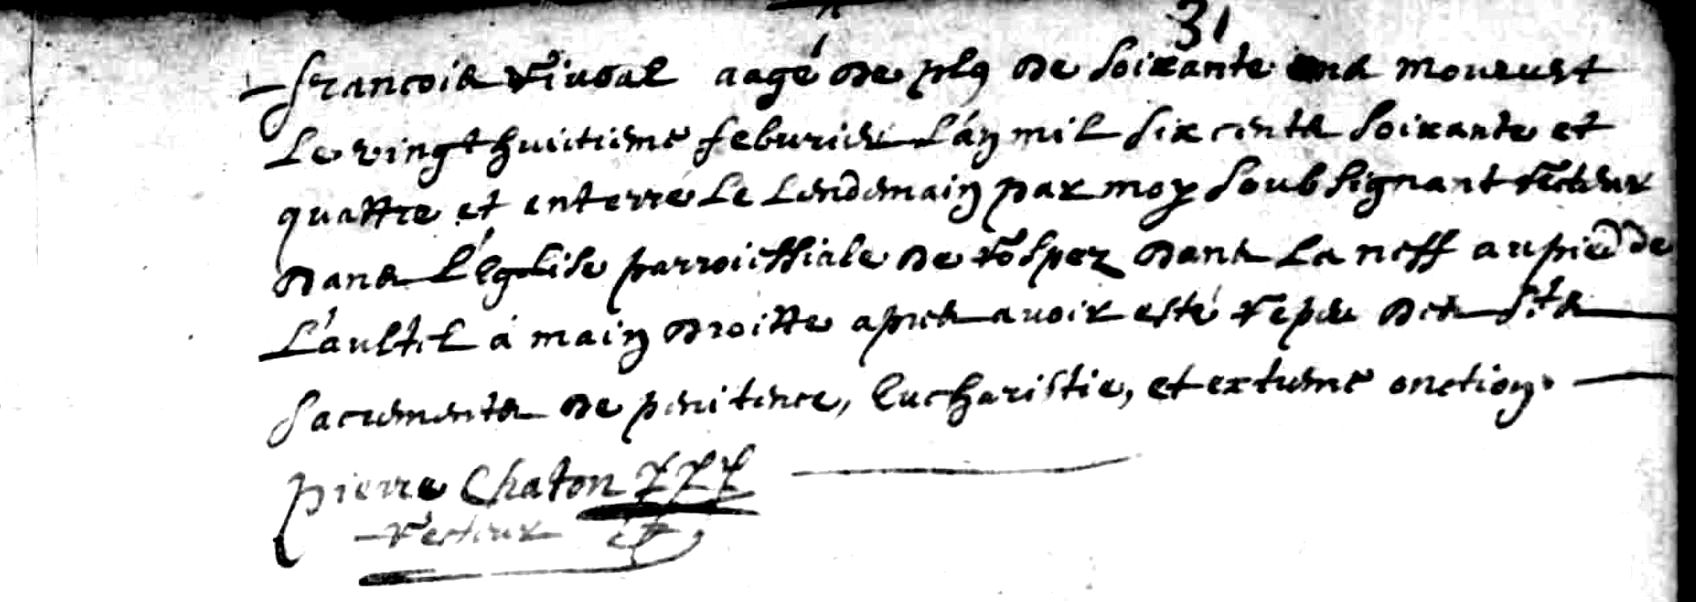 31
francois Riuoal aagé de plq de soixante ans mourust
Le vingt huictieme feburier L'an mil six cents soixante et
quattre et enterré Le Lendemain par moy soubsignant Recteur
dans L'Eglise parroissialle de Rospez dans La neff au pied de
L'aultel a main droitte apres avoir esté repeu des Sts
sacrements de penitence, Eucharistie, et extreme onction.
pierre Chaton
Recteur